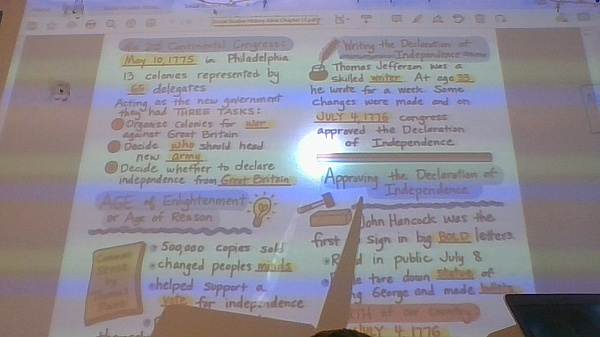 2nd Continental Congress:
May 10, 1775 in Philadelphia
13 colonies represented by
65 delegates
Acting as the new government
they had THREE TASKS:
Organize colonies for war
against Great Britain
Decide who should head
new army
Decide whether to declare
independence from Great Britain
AGE of Enlightenment
or Age of Reason
Common
Sense
by
Thomas
Paine
500,000 copies sold
changed peoples minds
helped support a
vote for independence
Writing the Declaration of
Independence
Thomas Jefferson was a
skilled writer. At age 33
he wrote for a week. Some
changes were made and on
JULY 4, 1776 congress
approved the Declaration
of Independence.
Approving the Declaration of
Independence
John Hancock was the
first sign in big BOLD letters.
in public July 8
tore down statue of
George and made bullets
of our country
JULY 4, 1776